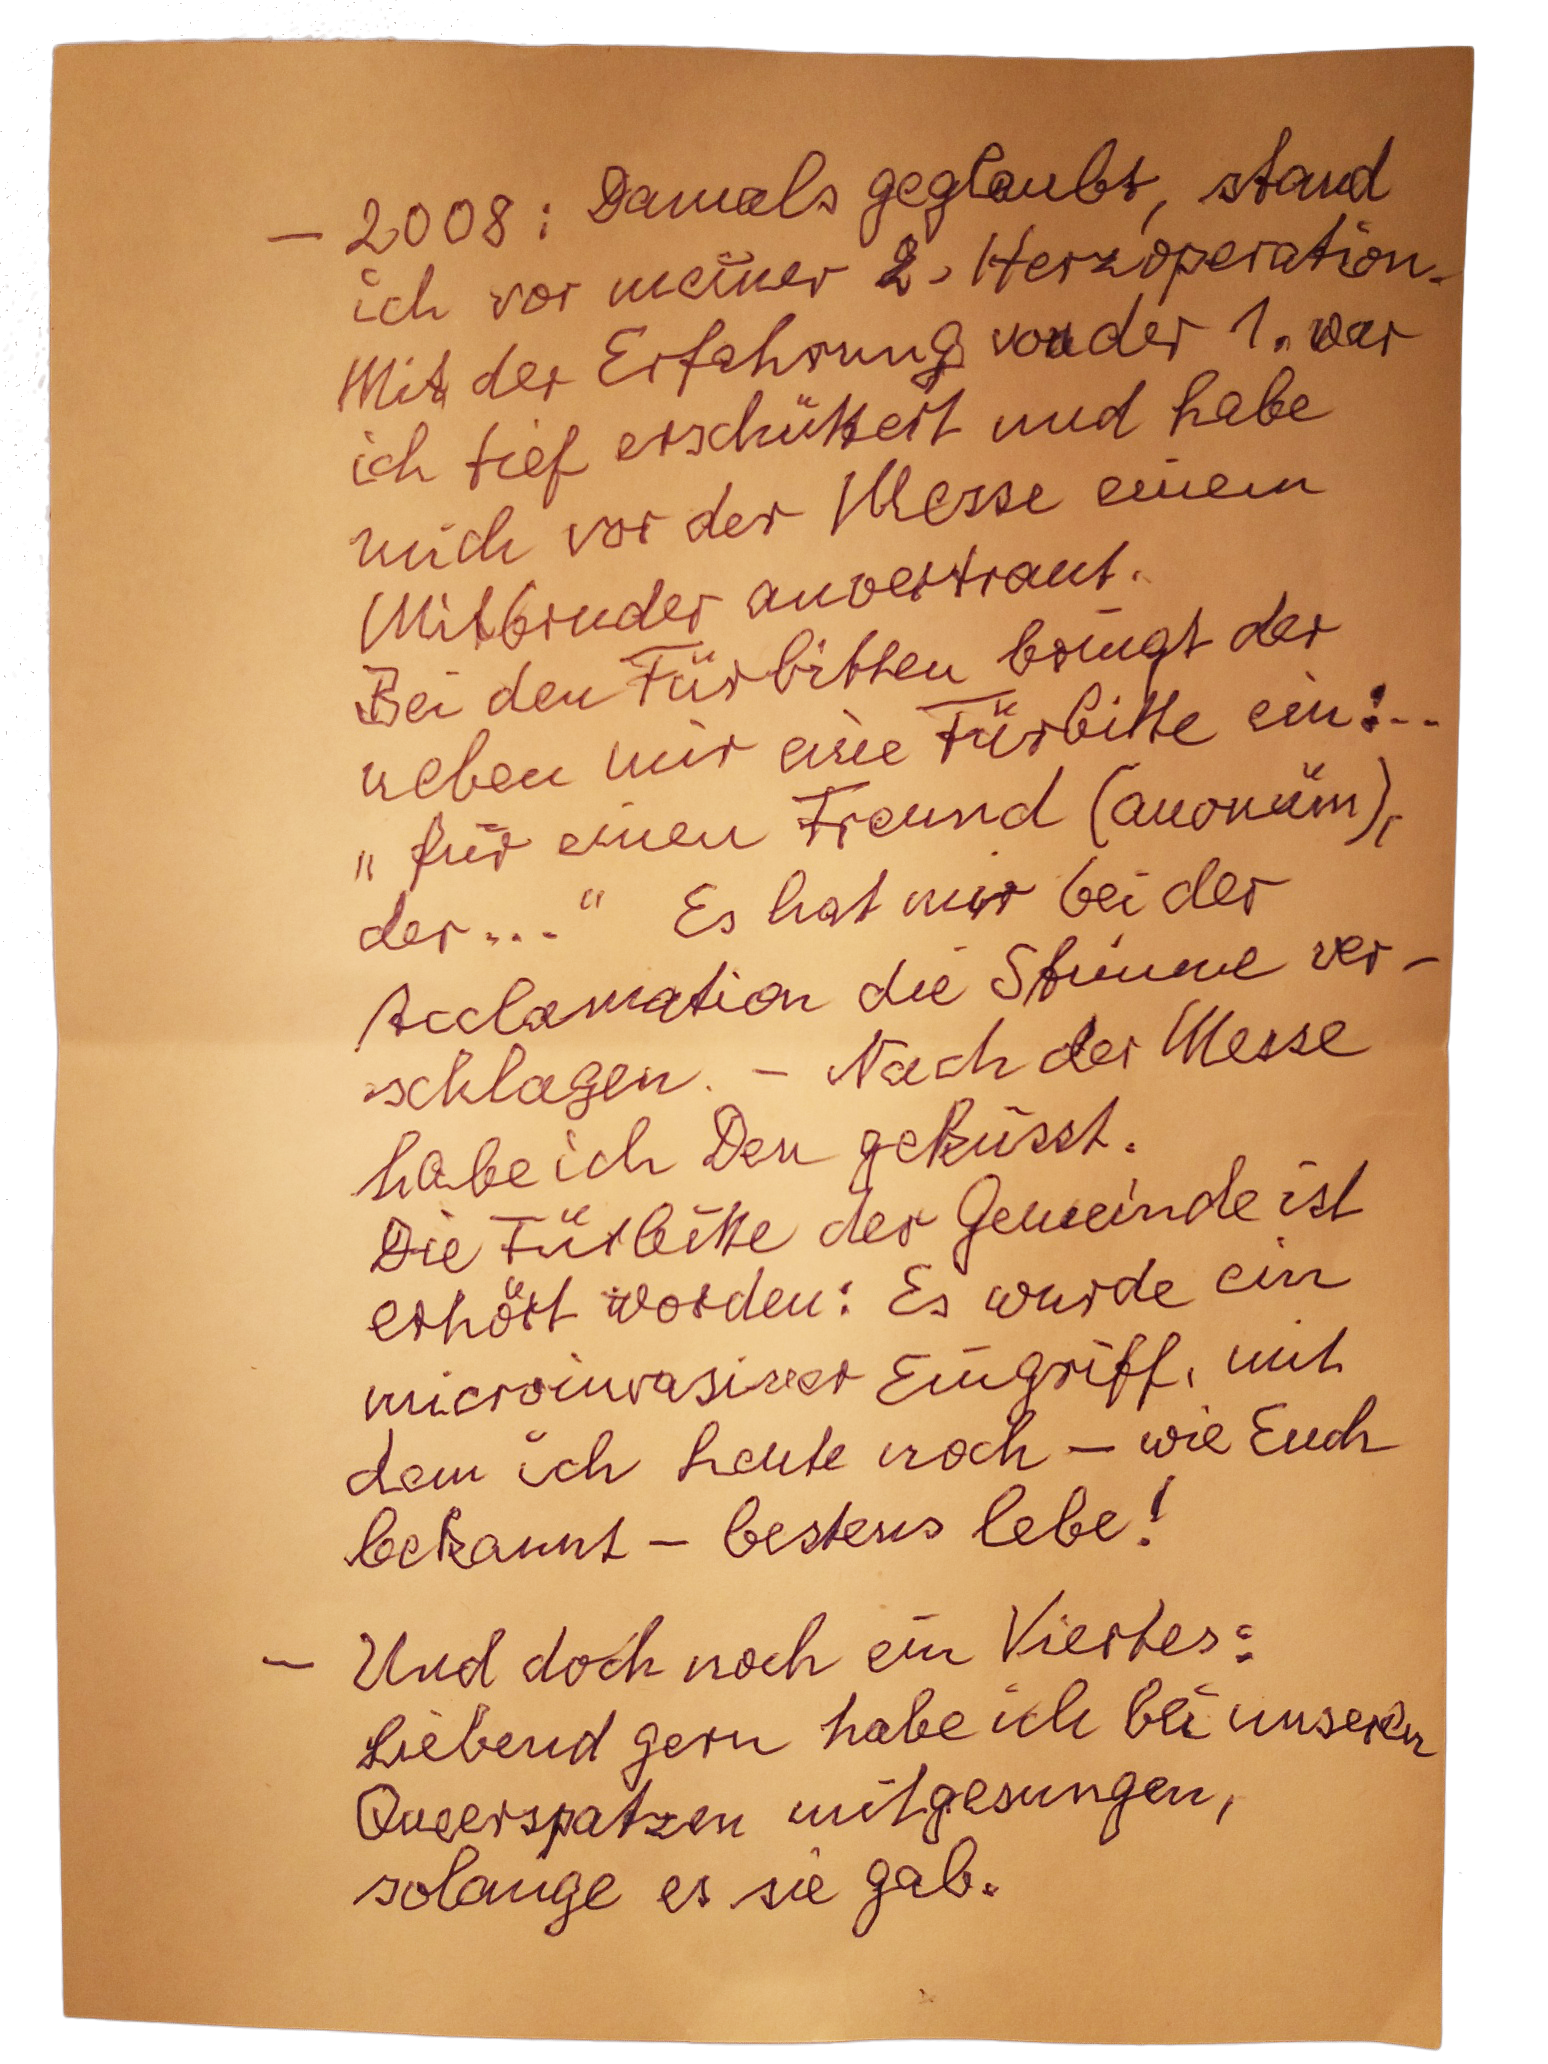 – 2008: Damals geglaubt, stand
ich vor meiner 2. Herzoperation.
Mit der Erfahrung von der 1. war
ich tief erschüttert und habe
mich vor der Messe einem
Mitbruder anvertraut.
Bei den Fürbitten bringt der
neben mir eine Fürbitte ein: ...
„für einen Freund (anonüm),
der ...“ Es hat mir bei der
Acclamation die Stimme ver-
schlagen. – Nach der Messe
habe ich Den geküsst.
Die Fürbitte der Gemeinde ist
erhört worden: Es wurde ein
microinvasiver Eingriff, mit
dem ich heute noch – wie Euch
bekannt – bestens lebe!
– Und doch noch ein Viertes:
Liebend gern habe ich bei unseren
Queerspatzen mitgesungen,
solange es sie gab.